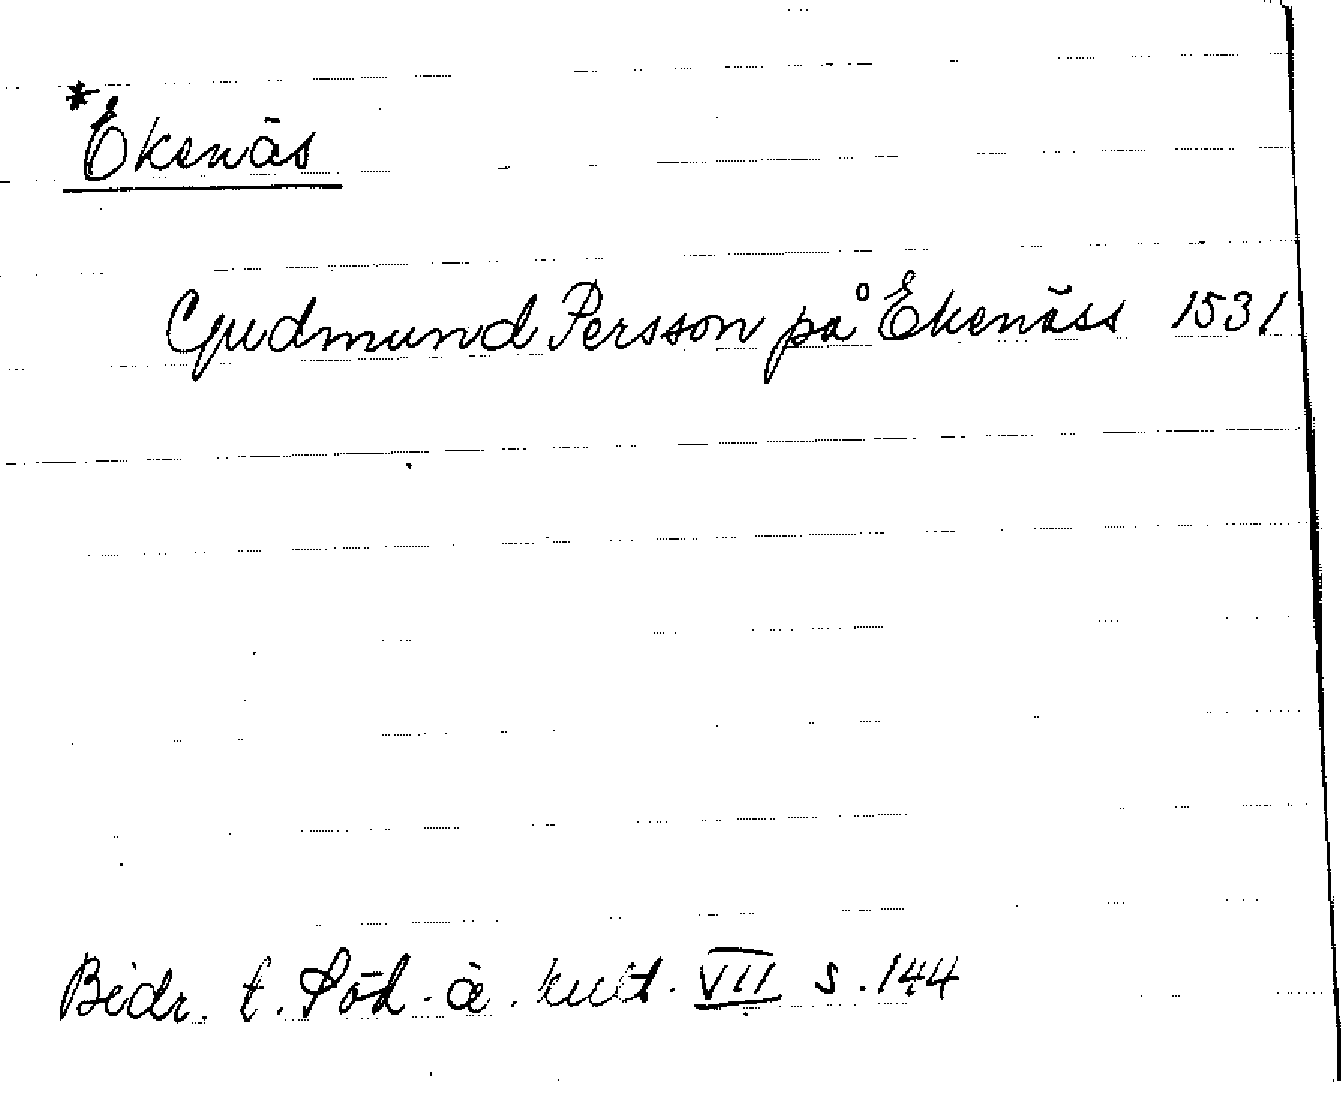 *Ekenäs
Gudmund Persson på Ekenäss 1531
Bidr. t. Söd. ä. kult. VII s. 144